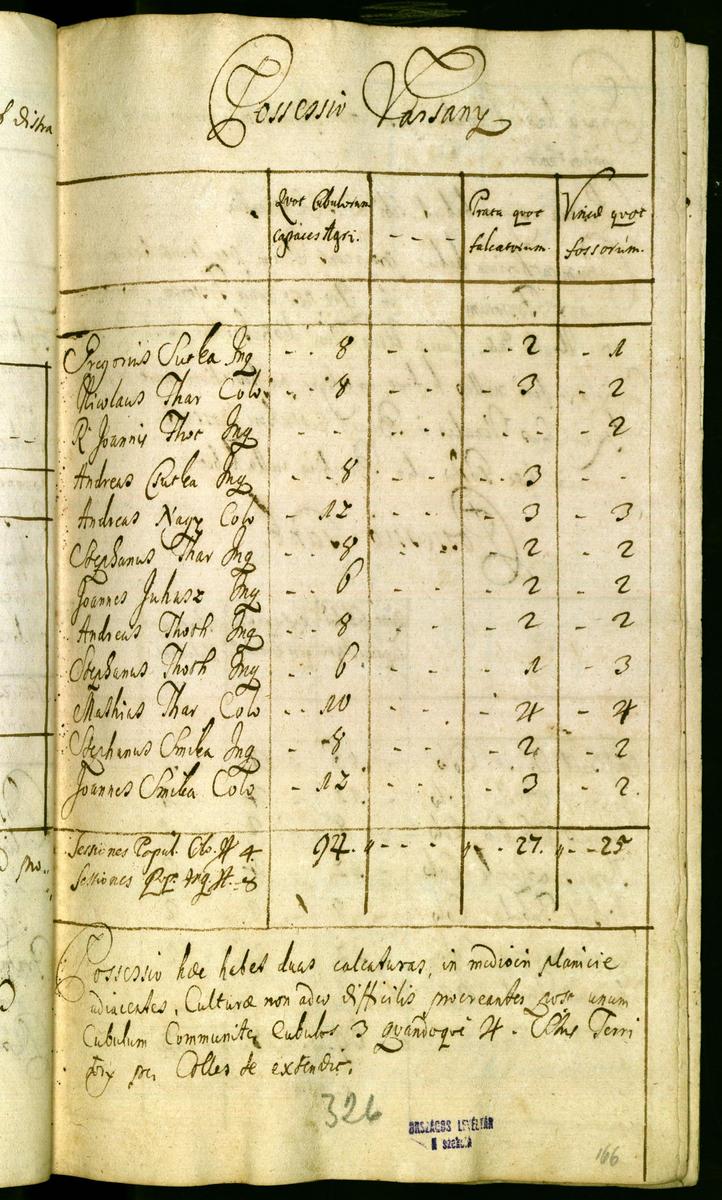 Possessio Varsany
Quot Cubulorum
capaces Agri.
- - -
Prata quot
falcatorum.
Vineæ quot
fossorum.
Gregorius Sutka Inq - - 8 - - - - 2 - 1
Nicolaus Thar Colo - - 8 - - - - 3 - 2
R. Joannis Thot Inq - - - - - - - - - 2
Andreas Csutka Inq - - 8 - - - - 3 - -
Andreas Nagy Colo - 12 - - - - 3 - 3
Stephanus Thar Inq - 8 - - - - 2 - 2
Joannes Juhasz Inq - - 6 - - - - 2 - 2
Andreas Thoth Inq - 8 - - - - 2 - 2
Stephanus Thoth Inq - 6 - - - - 1 - 3
Mathias Thar Colo - - 10 - - - - 4 - 4
Stephanus Smika Inq - 8 - - - - 2 - 2
Joannes Smika Colo - 12 - - - - 3 - 2.
Sessiones Popul. Clo. # 4. 94. - - - - - 27. - - 25
Sessiones Inq. #. = 8
Possessio hæc habet duas calcaturas, in mediocri planicie
adiacentes, Culturæ non adeo difficilis procreantes post unum
Cubulum Communiter Cubulos 3 quandoque 4.
per Colles se extendit.
326
ORSZÁGOS LEVÉLTÁR
166